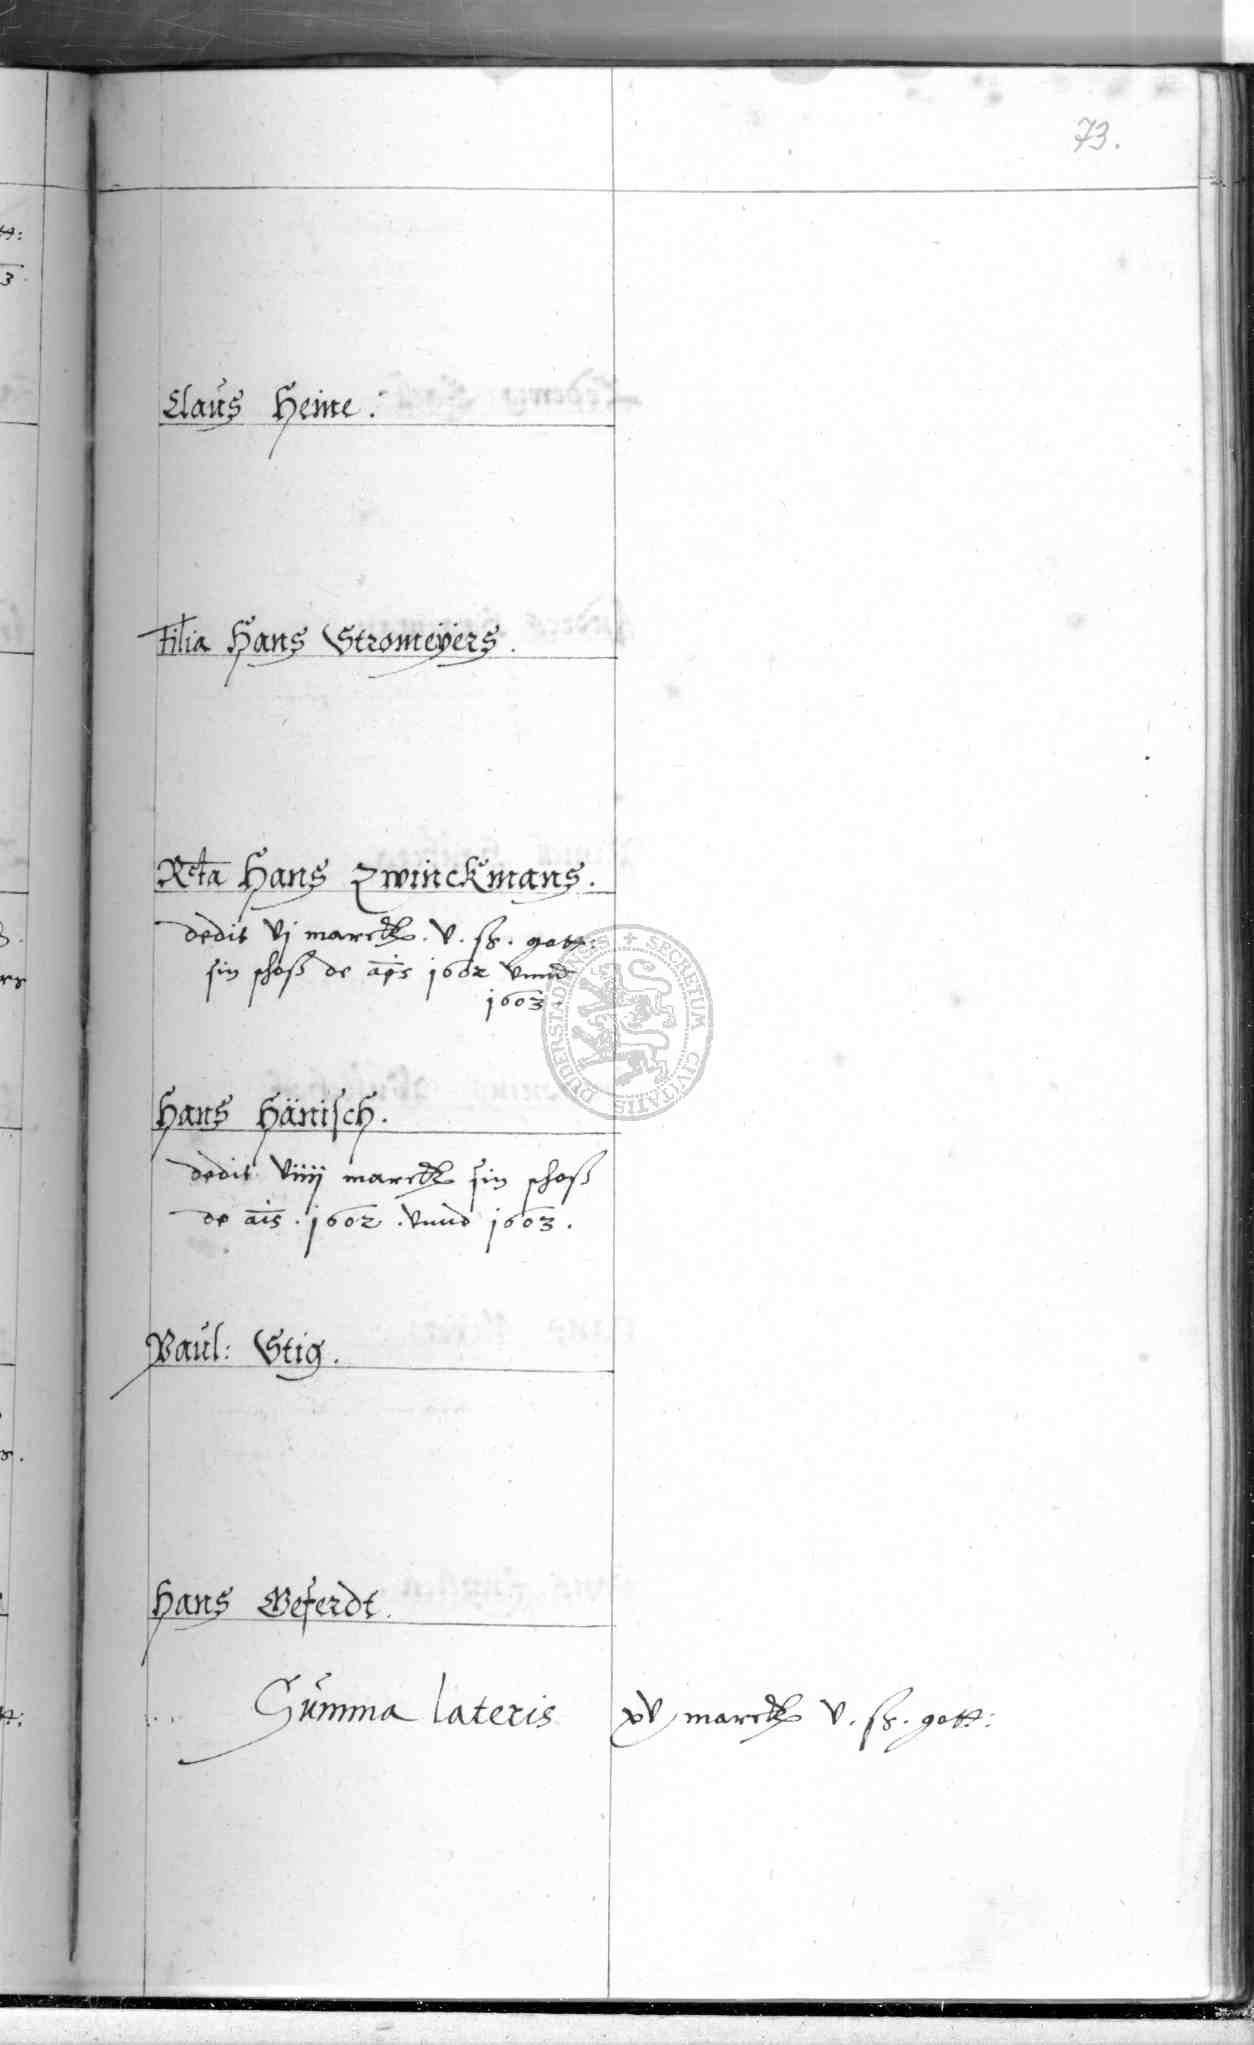 73.
Claus Heine.
Filia Hans Stromeÿers.
Rcta Hans Zwinckmans.
dedit vj marck. v. ß. gott:
sin schoß de ais 1602 vnnd
1603.
Hans Hänisch.
dedit viiij marck sin schoß
de ais. 1602. vnnd 1603.
Paul: Stig.
Hans Geferdt.
Summa lateris xv marck v. ß. gott:
SECRETUM CIVITATIS DUDERSTADIENSIS